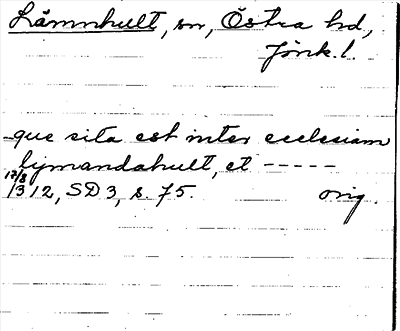 Lämnhult, sn, Östra hd,
Jönk. l.
que sita est inter ecclesiam
lijmandahult, et -----
17/8
1312, SD 3, s. 75. orig.